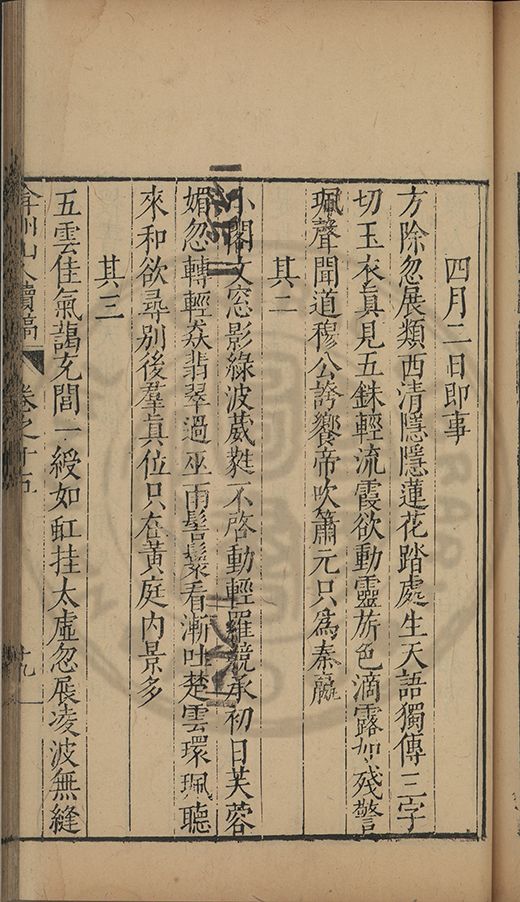 四月二日即事
方除忽展類西清隱隱蓮花踏處生天語獨傳三字
切玉衣真見五銖輕流霞欲動靈旂色滴露如殘警
珮聲聞道穆公誇饗帝吹簫元只為秦嬴
其二
小閣文窓影綠波葳蕤不啓動輕羅競承初日芙蓉
媚忽轉輕猋翡翠過巫雨髻鬟看漸吐楚雲環珮聽
來和欲尋別後羣真位只在黃庭內景多
其三
五雲佳氣藹充閭一綬如虹挂太虛忽展凌波無縫
弇州山人續稿
卷之十五
十九